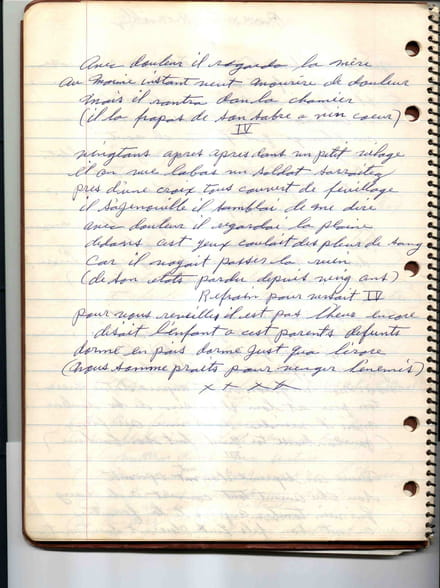 Avec douleur il regarda la mère
au Maime instant veut mourire de douleur
mais il rantra dan la chamier
(il la frapas de son sabre a nen coeur)
IV
vingtans apres apres dans un petit vilage
il on vue labas un Soldat
pres d'une croix tous couvert de feuillage
il Sagenouille il samblai de me dire
avec douleur il regardai la plaine
dedans cest yeux coulait des pleur de sang
Car il voyait passer la
(de son etats pardu depuis ving ans)
Refrain pour verssait IV
pour vous reveiller il est pas lheur encore
disait L'enfant a cest parents defunts
dorme en pais dorme Just qua lorore
(nous somme praits pour venger lenemis)
x + x x